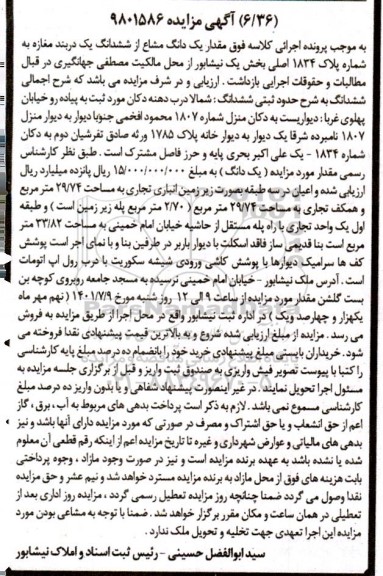 (۶/۳۶) آگهی مزایده ۹۸۰۱۵۸۶
به موجب پرونده اجرائی کلاسه فوق مقدار یک دانگ مشاع از ششدانگ یک دربند مغازه به
شماره پلاک ۱۸۳۴ اصلی بخش یک نیشابور از محل مالکیت مصطفی جهانگیری در قبال
مطالبات و حقوقات اجرایی بازداشت . ارزیابی و در شرف مزایده می باشد که شرح اجمالی
ششدانگ به شرح حدود ثبتی ششدانگ : شمالا درب دهنه دکان مورد ثبت به پیاده رو خیابان
پهلوی غربا : دیواریست به دکان منزل شماره ۱۸۰۷ محمود افخمی جنوبا دیوار به دیوار منزل
۱۸۰۷ نامبرده شرقا یک دیوار به دیوار خانه پلاک ۱۷۸۵ ورثه صادق تفرشیان دوم به دکان
شماره ۱۸۳۴ - یک علی اکبر بحری پایه و حرز فاصل مشترک است . طبق نظر کارشناس
رسمی مقدار مورد مزایده ( یک دانگ ) به مبلغ ۱۵/۰۰۰/۰۰۰/۰۰۰ ریال پانزده میلیارد ریال
ارزیابی شده و اعیان در سه طبقه بصورت زیر زمین انباری تجاری به مساحت ۲۹/۷۴ متر مربع
و همکف تجاری به مساحت ۲۹/۷۴ متر مربع ( ۲/۷۰ متر مربع پله زیر زمین است ) و طبقه
اول یک واحد تجاری با راه پله مستقل از حاشیه خیابان امام خمینی به مساحت ۳۳/۸۲ متر
مربع است بنا قدیمی ساز فاقد اسکلت با دیوار باربر در طرفین بنا و با نمای آجر است پوشش
کف ها سرامیک دیوارها با پوشش کاشی ورودی شیشه سکوریت با درب رول اپ اتومات
است . آدرس ملک نیشابور - خیابان امام خمینی نرسیده به مسجد جامعه روبروی کوچه بن
بست گلشن مقدار مورد مزایده از ساعت ۹ الی ۱۲ روز شنبه مورخ ۱۴۰۱/۷/۹ ( نهم مهر ماه
یکهزار و چهارصد ویک ) در اداره ثبت نیشابور واقع در محل اجرا از طریق مزایده به فروش
می رسد . مزایده از مبلغ ارزیابی شده شروع و به بالاترین قیمت پیشنهادی نقدا فروخته می
شود . خریداران بایستی مبلغ پیشنهادی خرید خود را بانضمام ده درصد مبلغ پایه کارشناسی
را کتبا با پیوست تصویر فیش واریزی به صندوق ثبت واریز و قبل از برگزاری جلسه مزایده به
مسئول اجرا تحویل نمایند . در غیر اینصورت پیشنهاد شفاهی و یا بدون واریز ده درصد مبلغ
کارشناسی مسموع نمی باشد . لازم به ذکر است پرداخت بدهی های مربوط به آب ، برق ، گاز
اعم از حق انشعاب و یا حق اشتراک و مصرف در صورتی که مورد مزایده دارای آنها باشد و نیز
بدهی های مالیاتی و عوارض شهرداری و غیره تا تاریخ مزایده اعم از اینکه رقم قطعی آن معلوم
شده یا نشده باشد به عهده برنده مزایده است و نیز در صورت وجود مازاد ، وجوه پرداختی
بابت هزینه های فوق از محل مازاد به برنده مزایده مسترد خواهد شد و نیم عشر و حق مزایده
نقدا وصول می گردد ضمنا چنانچه روز مزایده تعطیل رسمی گردد ، مزایده روز اداری بعد از
تعطیلی در همان ساعت و مکان مقرر برگزار خواهد شد . ضمنا با توجه به مشاعی بودن مورد
مزایده این اجرا تعهدی جهت تخلیه و تحویل ملک ندارد .
سید ابوالفضل حسینی - رئیس ثبت اسناد و املاک نیشابور